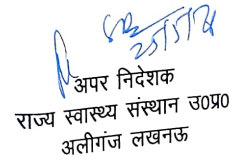 अपर निदेशक
राज्य स्वास्थ्य संस्थान उ०प्र०
अलीगंज लखनऊ